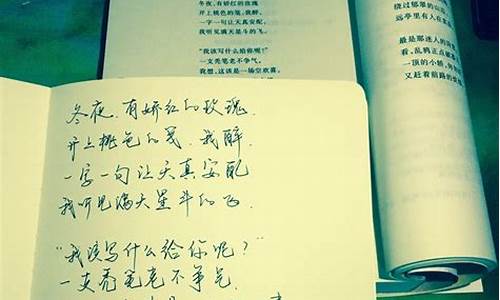 冬夜,有娇红的玫瑰
开上桃色的笺,我醉,
一字一句让天真安配,
我听见满天星斗的飞。
"我该写什么给你呢?"
一支秃笔老不争气,
我想,这该是一场空欢喜,
绕过郁翠的山
远亭里有人在
最是那迷人的
看,乱鸦正点破
一顶的小轿,
又赶着前路的
冬夜,有娇红的玫瑰,
开上桃色的笺,我醉,
一字一句让天真安配
我听见满天星斗的飞.
"我该写什么给你呢?"
一支秃笔老不争气.